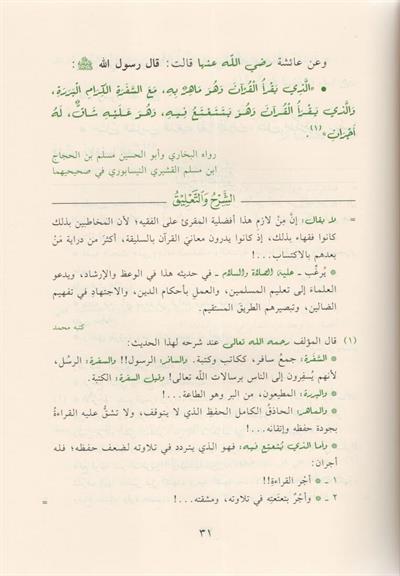 وعن عائشة رضي اللّه عنها قالت: قال رسول الله ﷺ:
• «الَّذِي يَقْرَأُ الْقُرْآنَ وَهُوَ مَاهِرٌ بِهِ، مَعَ السَّفَرَةِ الْكِرَامِ الْبَرَرَةِ،
وَالَّذِي يَقْرَأُ الْقُرْآنَ وَهُوَ يَتَتَعْتَعُ فِيهِ، وَهُوَ عَلَيْهِ شَاقٌّ، لَهُ
أَجْرَانِ»(١).
رواه البخاري وأبو الحسين مسلم بن الحجاج
ابن مسلم القشيري النيسابوري في صحيحيهما
الشَّرْحُ وَالتَّعْلِيْقُ
= لا يقال: إنَّ مِنْ لازمِ هذا أفضلية المقرئ على الفقيه؛ لأن المخاطبين بذلك
كانوا فقهاء بذلك، إذ كانوا يدرون معانيَ القرآن بالسليقة، أكثرَ من دراية مَنْ
بعدهم بالاكتساب...!
* يُرغِّب ـ عليه الصلاة والسلام ـ في حديثه هذا في الوعظ والإرشاد، ويدعو
العلماءَ إلى تعليم المسلمين، والعملِ بأحكام الدين، والاجتهادِ في تفهيم
الضالين، وتبصيرهم الطريقَ المستقيم.
كتبه محمد
(١) قال المؤلف رحمه الله تعالى عند شرحه لهذا الحديث:
* السَّفَرة: جمعُ سافر، ككاتب وكتبة. والسافر: الرسول!! والسفرة: الرسُل،
لأنهم يُسفِرون إلى الناس برسالات اللّه تعالى! وقيل السفرة: الكتبة.
* والبررة: المطيعون، من البر وهو الطاعة...!
* والماهر: الحاذقُ الكامل الحفظِ الذي لا يتوقف، ولا تشقُّ عليه القراءةُ
بجودة حفظه وإتقانه...!
* وأما الذي يتتعتع فيه: فهو الذي يتردد في تلاوته لضعف حفظه؛ فله
أجران:
١ ـ * أجْر القراءةِ!!
٢ ـ * وأجْرٌ بتَعتَعتِه في تلاوته، ومشقته...! =
٣١